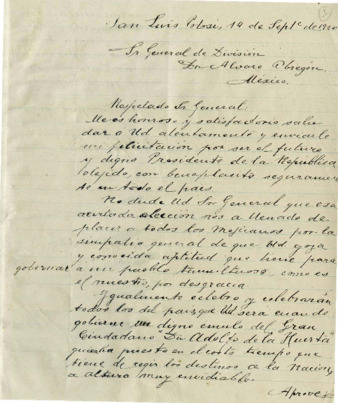 San Luis Potosi, 14 de Septe de 1920
Sr General de División
Dn Alvaro Obregón.
México.
Respetado Sr General.
Me es honroso y satisfactorio salu
dar a Ud atentamente y enviarle
mi felicitación por ser el futuro
y digno Presidente de la República
elejido, con beneplasito seguramen
te en todo el pais.
No dude Ud Sor General que esa
acertada elección nos a llenado de
placer a todos los Mejicanos por la
simpatia general de que Ud goza
y conocida aptitud que tiene para
gobernar a un pueblo tumultuoso como es
el nuestro, por desgracia.
Igualmente celebro y celebrarán
todos los del pais, que Ud sera cuando
gobierne un digno emulo del Gran
Ciudadano Dn Adolfo de la Huerta
puesto en el corto tiempo que
tiene de regir los destinos a la Nación,
a altura muy envidiable.
Aprove